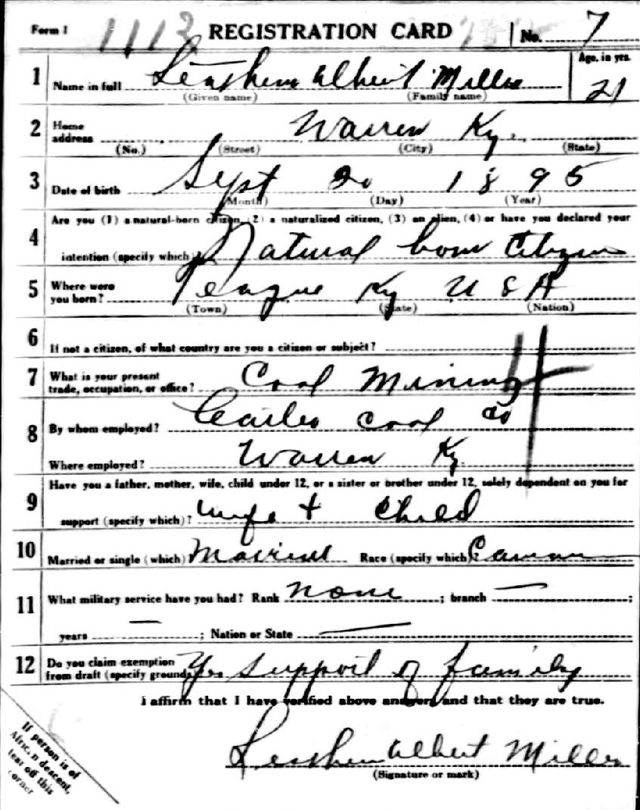 Form 1 1113 REGISTRATION CARD No. 7
1 Name in full Albert Miller Age, in yrs. 21
(Given name) (Family name)
2 Home address Warren Ky.
(No.) (Street) (City) (State)
3 Date of birth Sept 20 1895
(Month) (Day) (Year)
4 Are you (1) a natural-born citizen, (2) a naturalized citizen, (3) an alien, (4) or have you declared your
intention (specify which)? Natural born Citizen
5 Where were you born? Ky U S A
(Town) (State) (Nation)
6 If not a citizen, of what country are you a citizen or subject?
7 What is your present trade, occupation, or office? Coal Mining
8 By whom employed? Coal Co
Where employed? Warren Ky
9 Have you a father, mother, wife, child under 12, or a sister or brother under 12, solely dependent on you for
support (specify which)? wife + child
10 Married or single (which) Married Race (specify which)
11 What military service have you had? Rank none ; branch —
years — ; Nation or State —
12 Do you claim exemption from draft (specify grounds) Yes support of family
I affirm that I have verified above answers and that they are true.
Albert Miller
(Signature or mark)
If person is of
African descent,
tear off this
corner